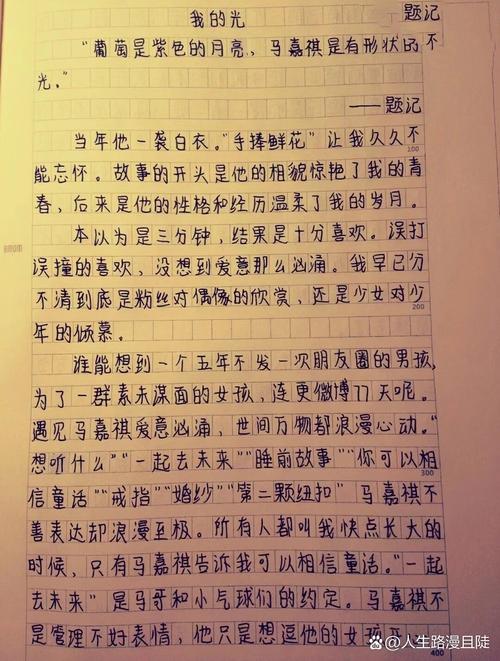 我的光 题记
“葡萄是紫色的月亮，马嘉祺是有形状的不
光。”
——题记
当年他一袭白衣。“手捧鲜花”让我久久不
100
能忘怀。故事的开头是他的相貌惊艳了我的青
春，后来是他的性格和经历温柔了我的岁月。
本以为是三分钟，结果是十分喜欢。误打
误撞的喜欢，没想到爱意那么汹涌。我早已分
不清到底是粉丝对偶像的欣赏，还是少女对少
200
年的倾慕。
谁能想到一个五年不发一次朋友圈的男孩，
为了一群素未谋面的女孩，连更微博77天呢。
遇见马嘉祺爱意汹涌，世间万物都浪漫心动。“
想听什么”“一起去未来”“睡前故事”“你可以相
300
信童话”“戒指”“婚纱”“第二颗纽扣”马嘉祺不
善表达却浪漫至极。所有人都叫我快点长大的
时候，只有马嘉祺告诉我可以相信童话。“一起
去未来”是马哥和小气球们的约定。马嘉祺不
是管理不好表情，他只是想逗他的女孩开
400
@人生路漫且陡